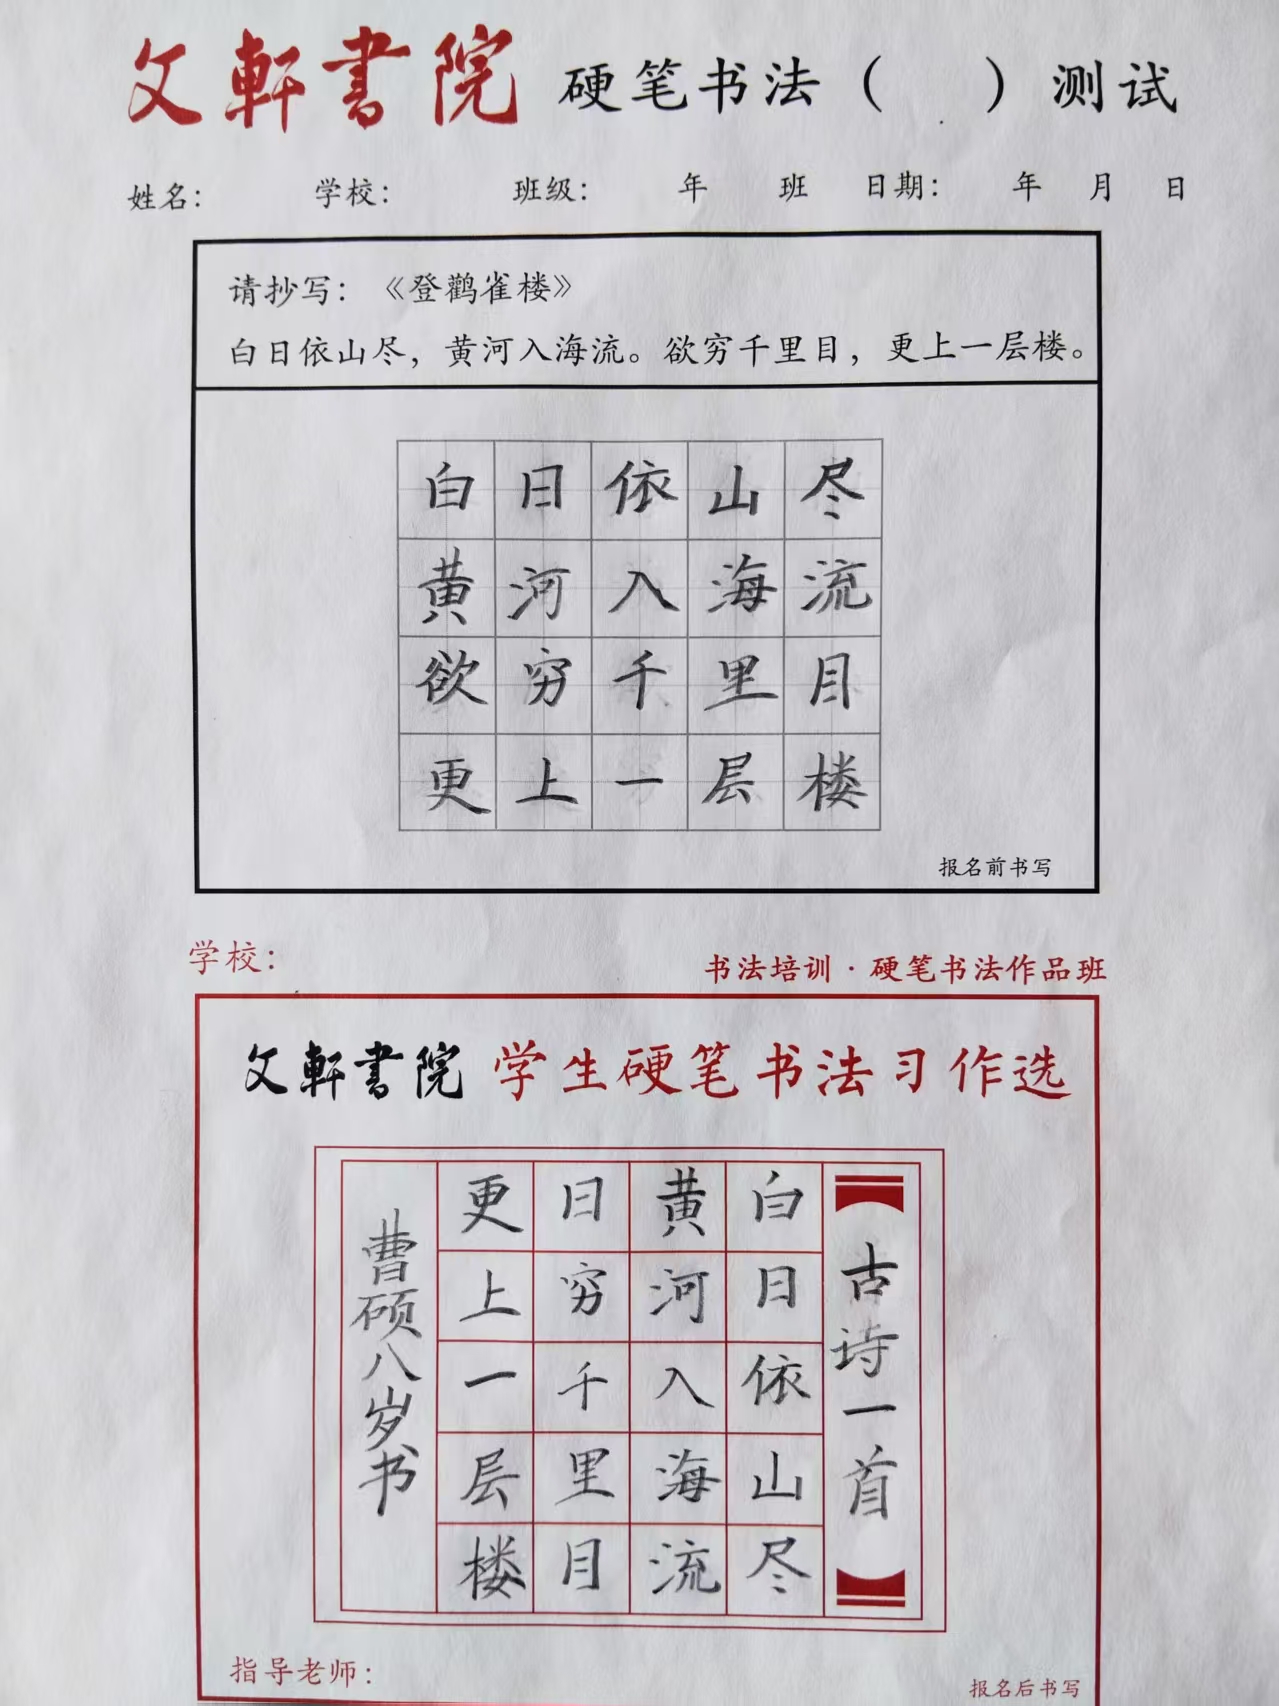 文軒書院 硬笔书法（ ）测试
姓名： 学校： 班级： 年 班 日期： 年 月 日
请抄写：《登鹳雀楼》
白日依山尽，黄河入海流。欲穷千里目，更上一层楼。
白日依山尽
黄河入海流
欲穷千里目
更上一层楼
报名前书写
学校：
书法培训·硬笔书法作品班
文軒書院 学生硬笔书法习作选
古诗一首
白日依山尽
黄河入海流
日穷千里目
更上一层楼
曹硕八岁书
指导老师：
报名后书写